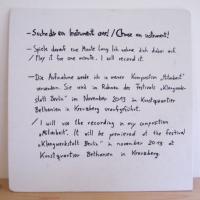 - Suche dir ein Instrument aus! / Choose an instrument!
- Spiele darauf eine Minute lang. Ich nehme dich dabei auf.
/ Play it for one minute. I will record it.
- Die Aufnahme werde ich in meiner Komposition „Mitarbeit"
verwenden. Sie wird im Rahmen des Festivals „Klangwerk-
statt Berlin" im November 2013 im Kunstquartier
Bethanien in Kreuzberg uraufgeführt.
/ I will use the recording in my composition
„Mitarbeit". It will be premiered at the festival
„Klangwerkstatt Berlin" in november 2013 at
Kunstquartier Bethanien in Kreuzberg.